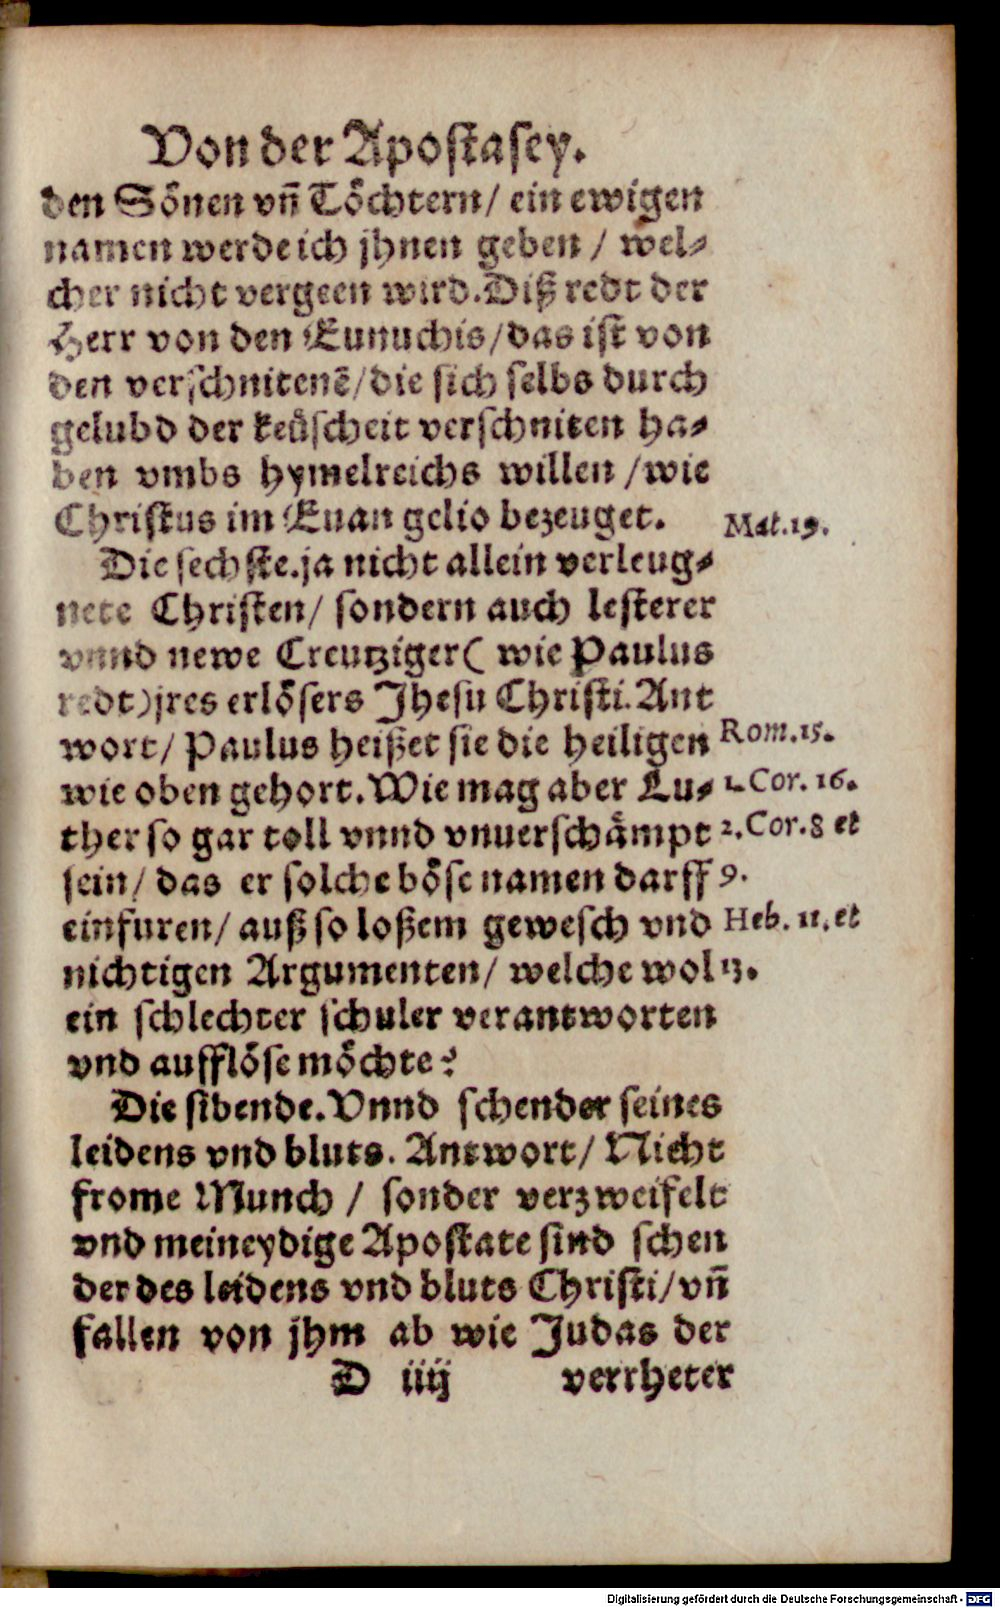 Von der Apostasey.
den Sönen vñ Töchtern/ ein ewigen
namen werde ich jhnen geben / wel⸗
cher nicht vergeen wird. Diß redt der
Herr von den Eunuchis/das ist von
den verschnitenē/die sich selbs durch
gelubd der keüscheit verschniten ha⸗
ben vmbs hymelreichs willen /wie
Christus im Euan gelio bezeuget.
Mat.19.
Die sechste. ja nicht allein verleug⸗
nete Christen/ sondern auch lesterer
vnnd newe Creutziger( wie Paulus
redt)jres erlösers Jhesu Christi. Ant
wort/ Paulus heißet sie die heiligen
Rom.15.
wie oben gehort. Wie mag aber Lu⸗
1. Cor. 16.
ther so gar toll vnnd vnuerschämpt
2. Cor. 8 et
sein/ das er solche böse namen darff
9.
einfuren/ auß so loßem gewesch vnd
Heb. 11. et
nichtigen Argumenten/ welche wol
13.
ein schlechter schuler verantworten
vnd aufflöse möchte?
Die sibende. Vnnd schender seines
leidens vnd bluts. Antwort/ Nicht
frome Munch / sonder verzweifelt
vnd meineydige Apostate sind schen
der des leidens vnd bluts Christi/ vñ
fallen von jhm ab wie Judas der
D iiij verrheter
Digitalisierung gefördert durch die Deutsche Forschungsgemeinschaft - DFG